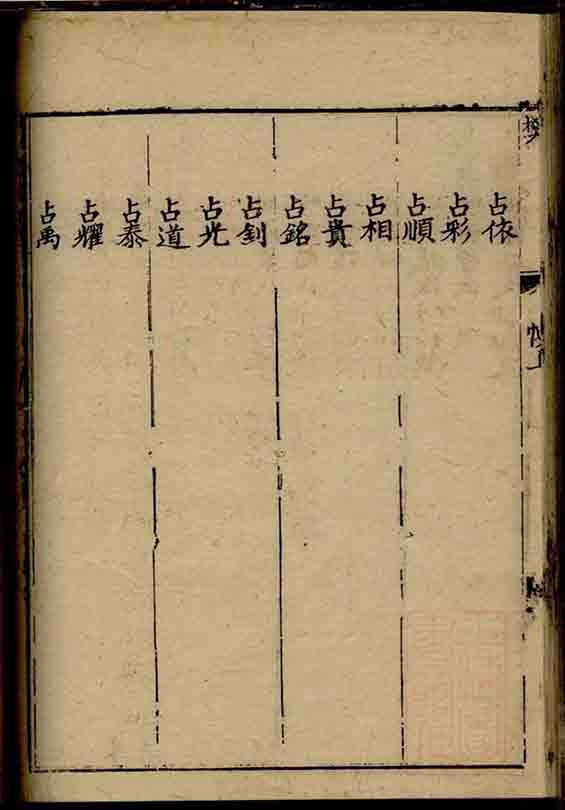 占依
占彩
占順
占相
占貴
占銘
占釗
占光
占道
占泰
占耀
占禹